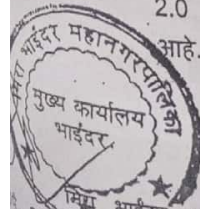 2.0
आहे.
मिरा भाईंदर महानगरपालिका
मुख्य कार्यालय
भाईंदर
मिरा भाईंदर